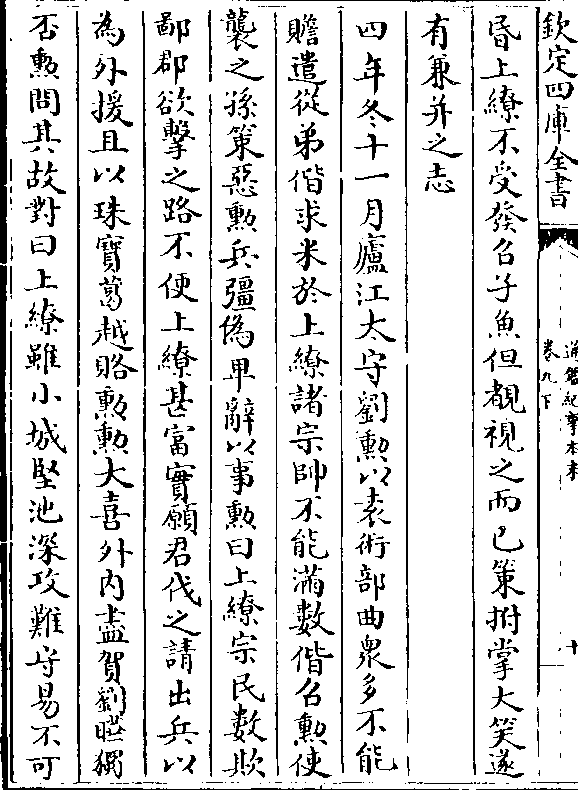 欽定四庫全書
通鑑紀事本末
卷九下
十
昏上繚不受發召子魚但覩視之而已策拊掌大笑遂
有兼并之志
四年冬十一月廬江太守劉勲以袁術部曲衆多不能
贍遣從弟偕求米於上繚諸宗帥不能滿數偕召勲使
襲之孫策惡勲兵彊偽卑辭以事勲曰上繚宗民數欺
鄙郡欲擊之路不便上繚甚富實願君伐之請出兵以
為外援且以珠寶葛越賂勲勲大喜外内盡賀劉曄獨
否勲問其故對曰上繚雖小城堅池深攻難守易不可